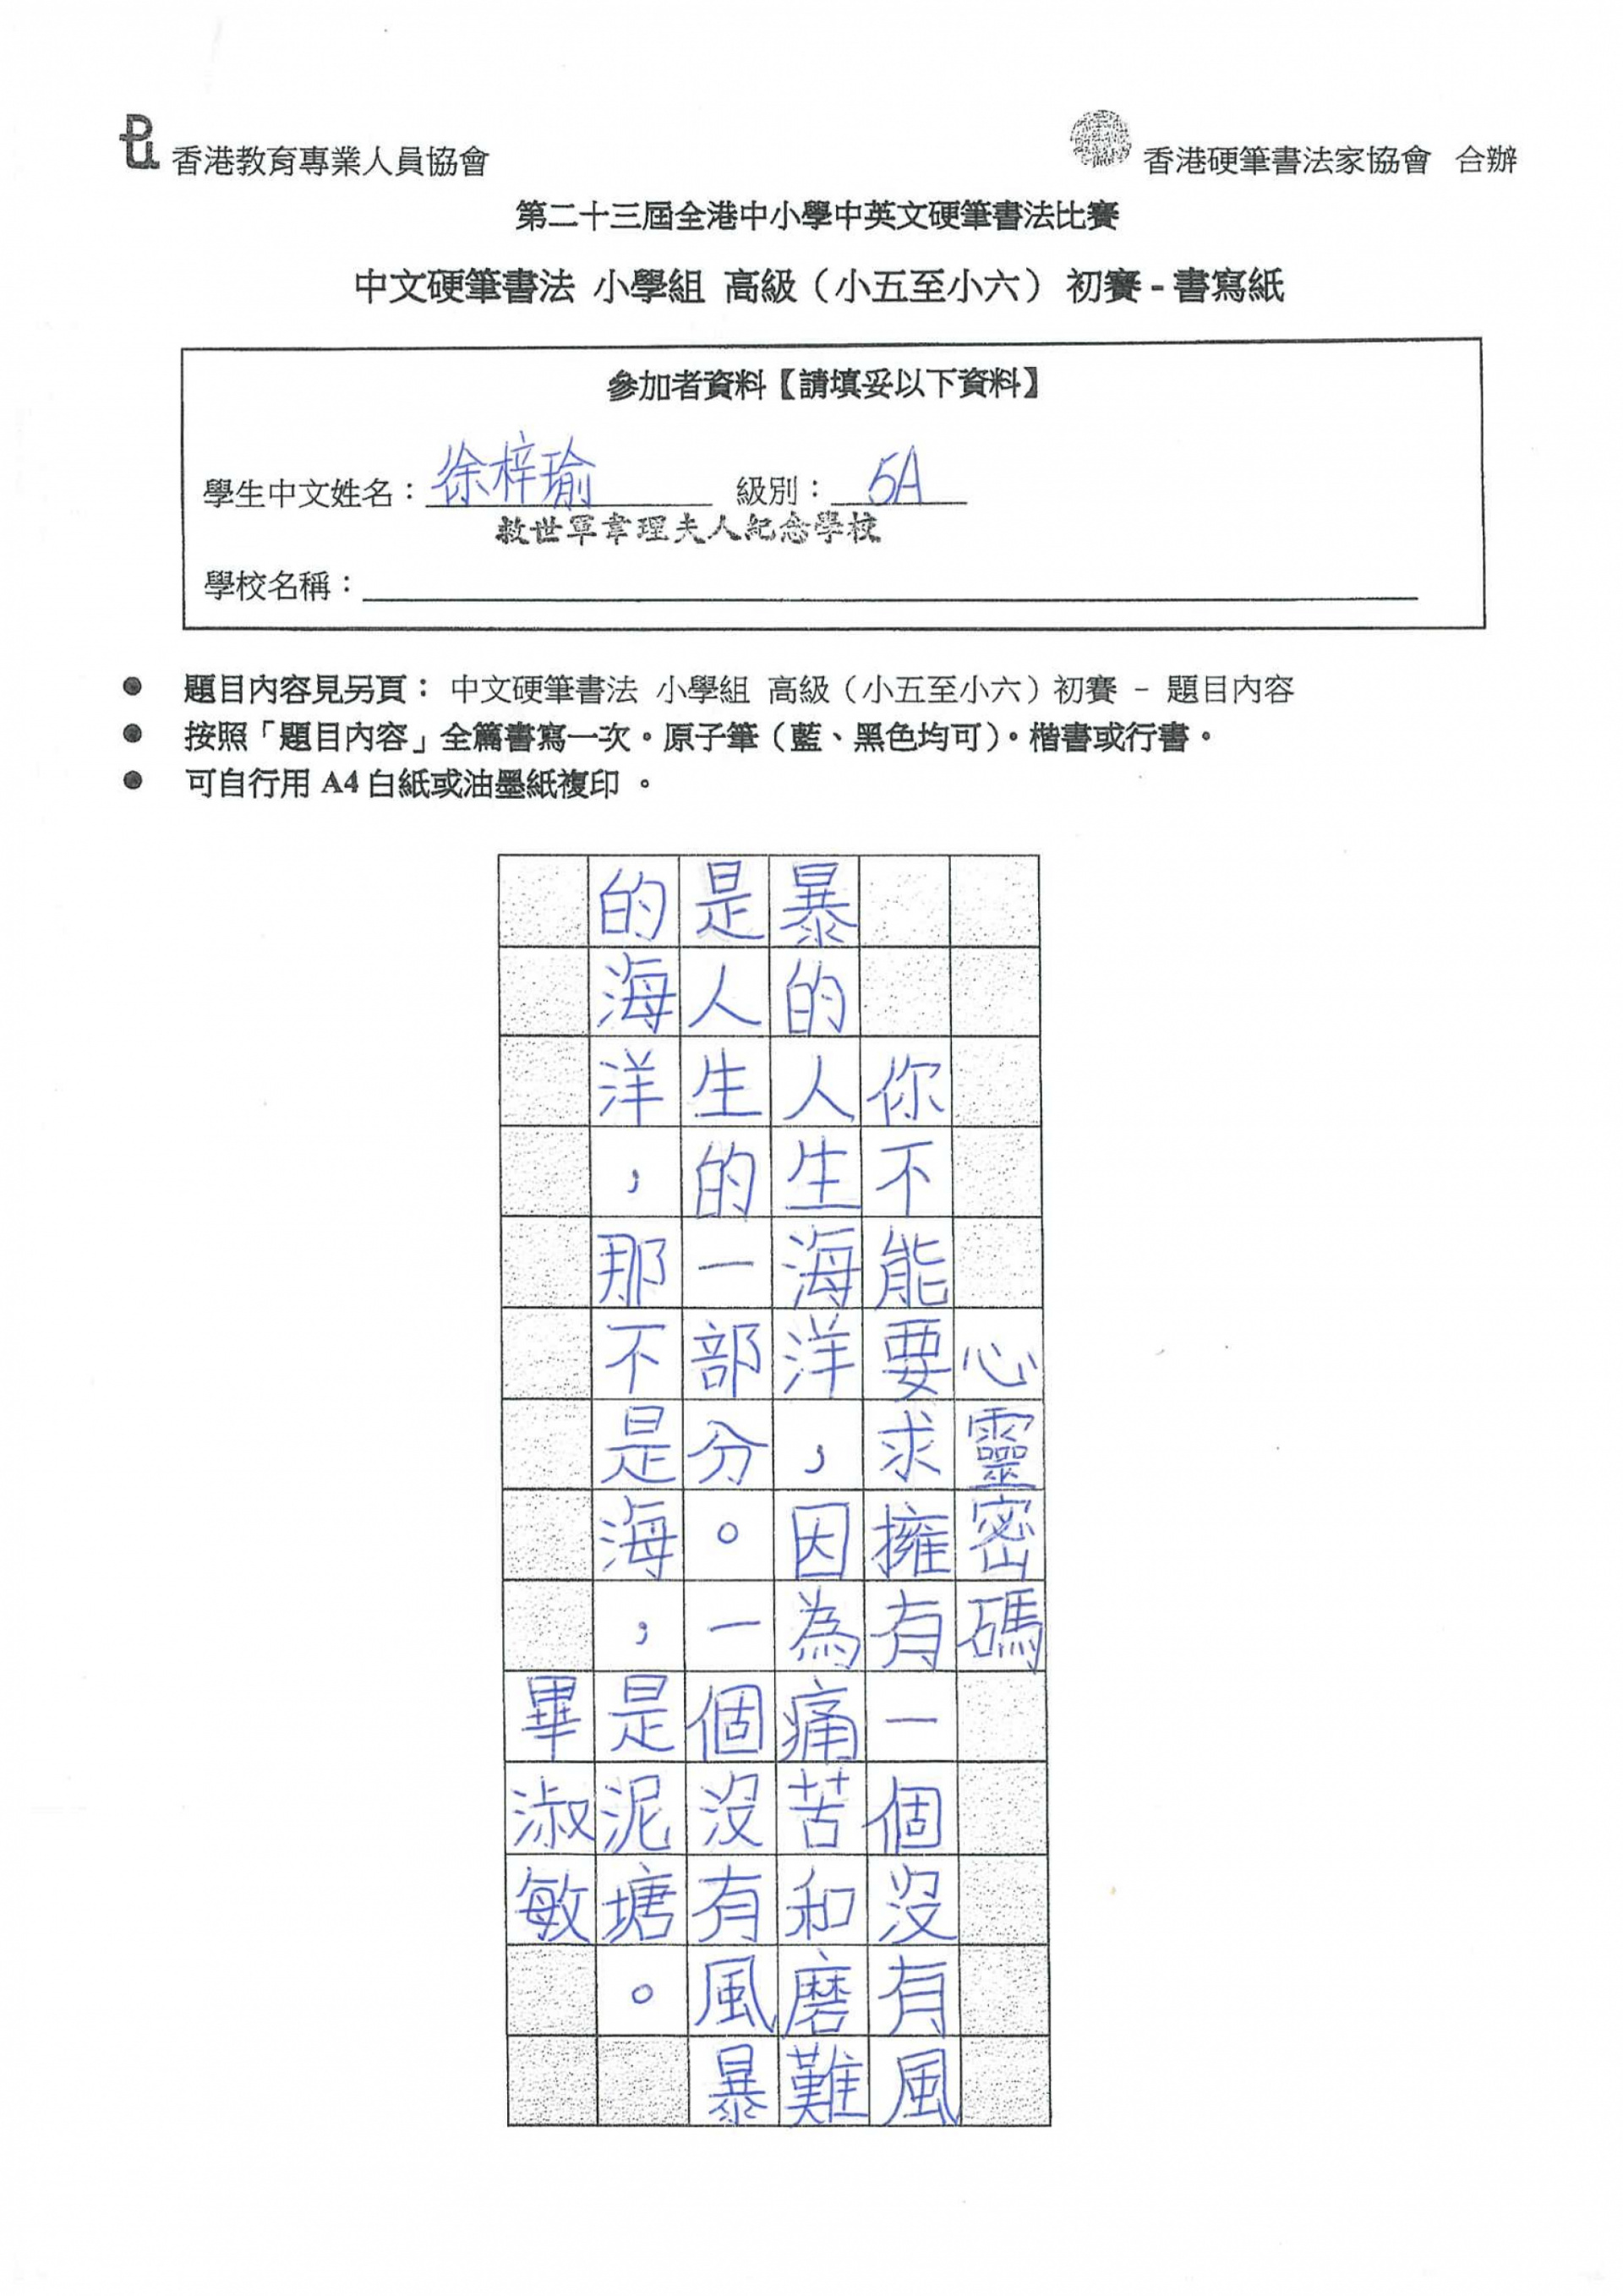 香港教育專業人員協會
香港硬筆書法家協會 合辦
第二十三屆全港中小學中英文硬筆書法比賽
中文硬筆書法 小學組 高級（小五至小六） 初賽 - 書寫紙
參加者資料【請填妥以下資料】
學生中文姓名：徐梓瑜 級別：5A
救世軍韋理夫人紀念學校
學校名稱：
● 題目內容見另頁： 中文硬筆書法 小學組 高級（小五至小六）初賽 － 題目內容
● 按照「題目內容」全篇書寫一次。原子筆（藍、黑色均可）。楷書或行書。
● 可自行用 A4 白紙或油墨紙複印 。
心靈密碼
你不能要求擁有一個沒有風
暴的人生海洋，因為痛苦和磨難
是人生的一部分。一個沒有風暴
的海洋，那不是海，是泥塘。
畢淑敏